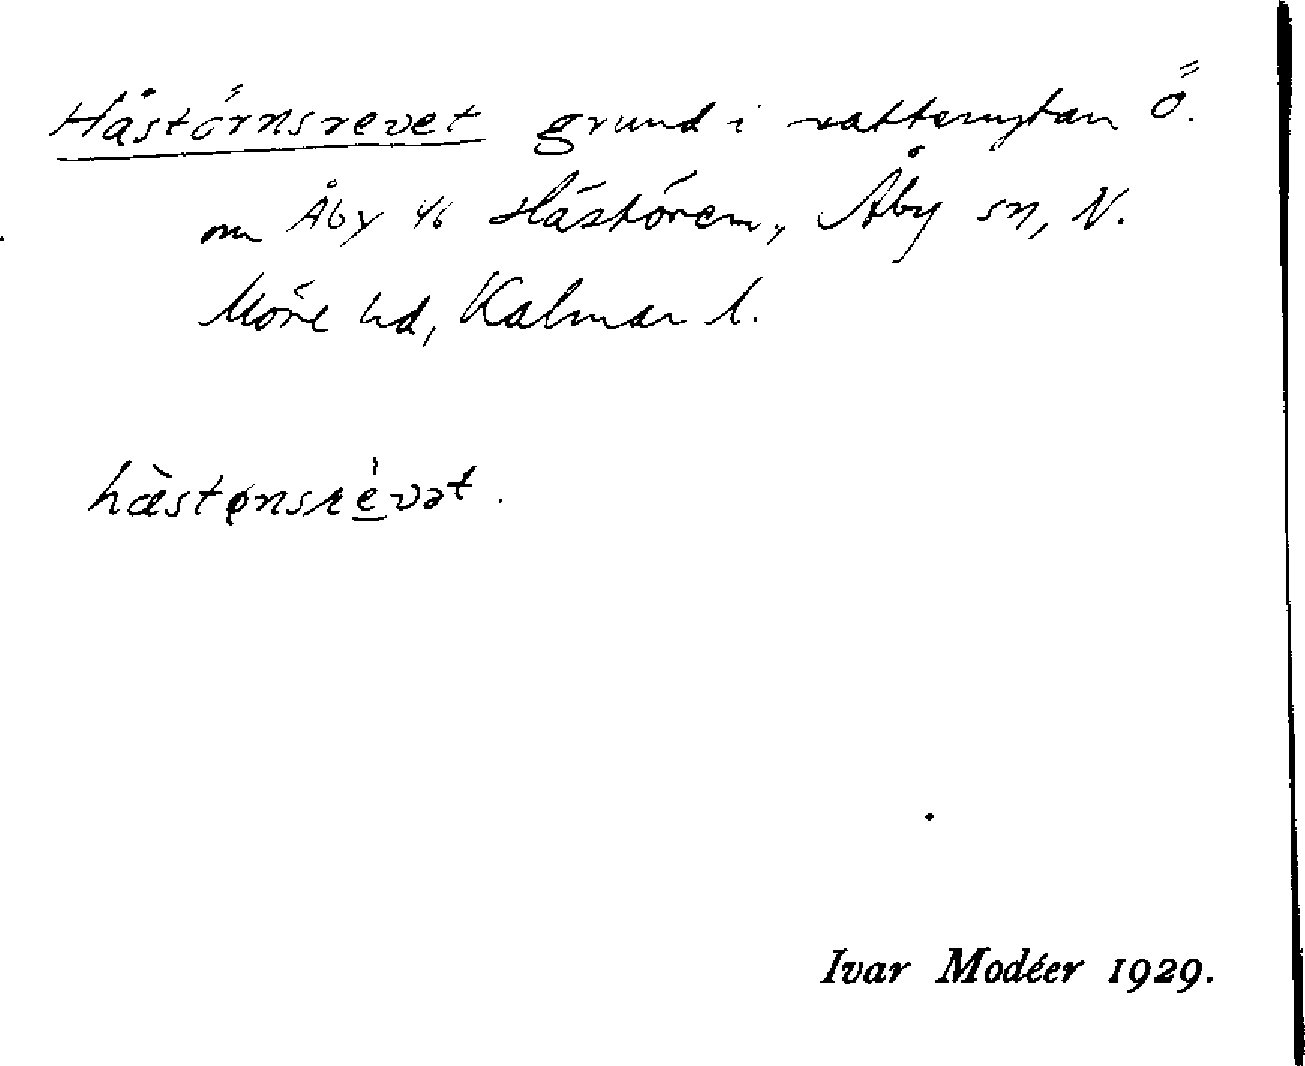 Hästörnsrevet grund i vattenytan Ö.
om Åby 4/6 Hästören, Åby sn, N.
Möre hd, Kalmar l.
hæ̀stønsrévət.
Ivar Modéer 1929.